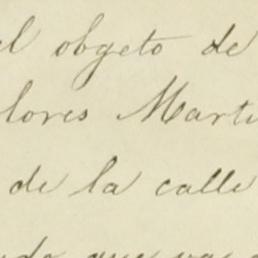 el obgeto de
lores Marti
de la calle
que